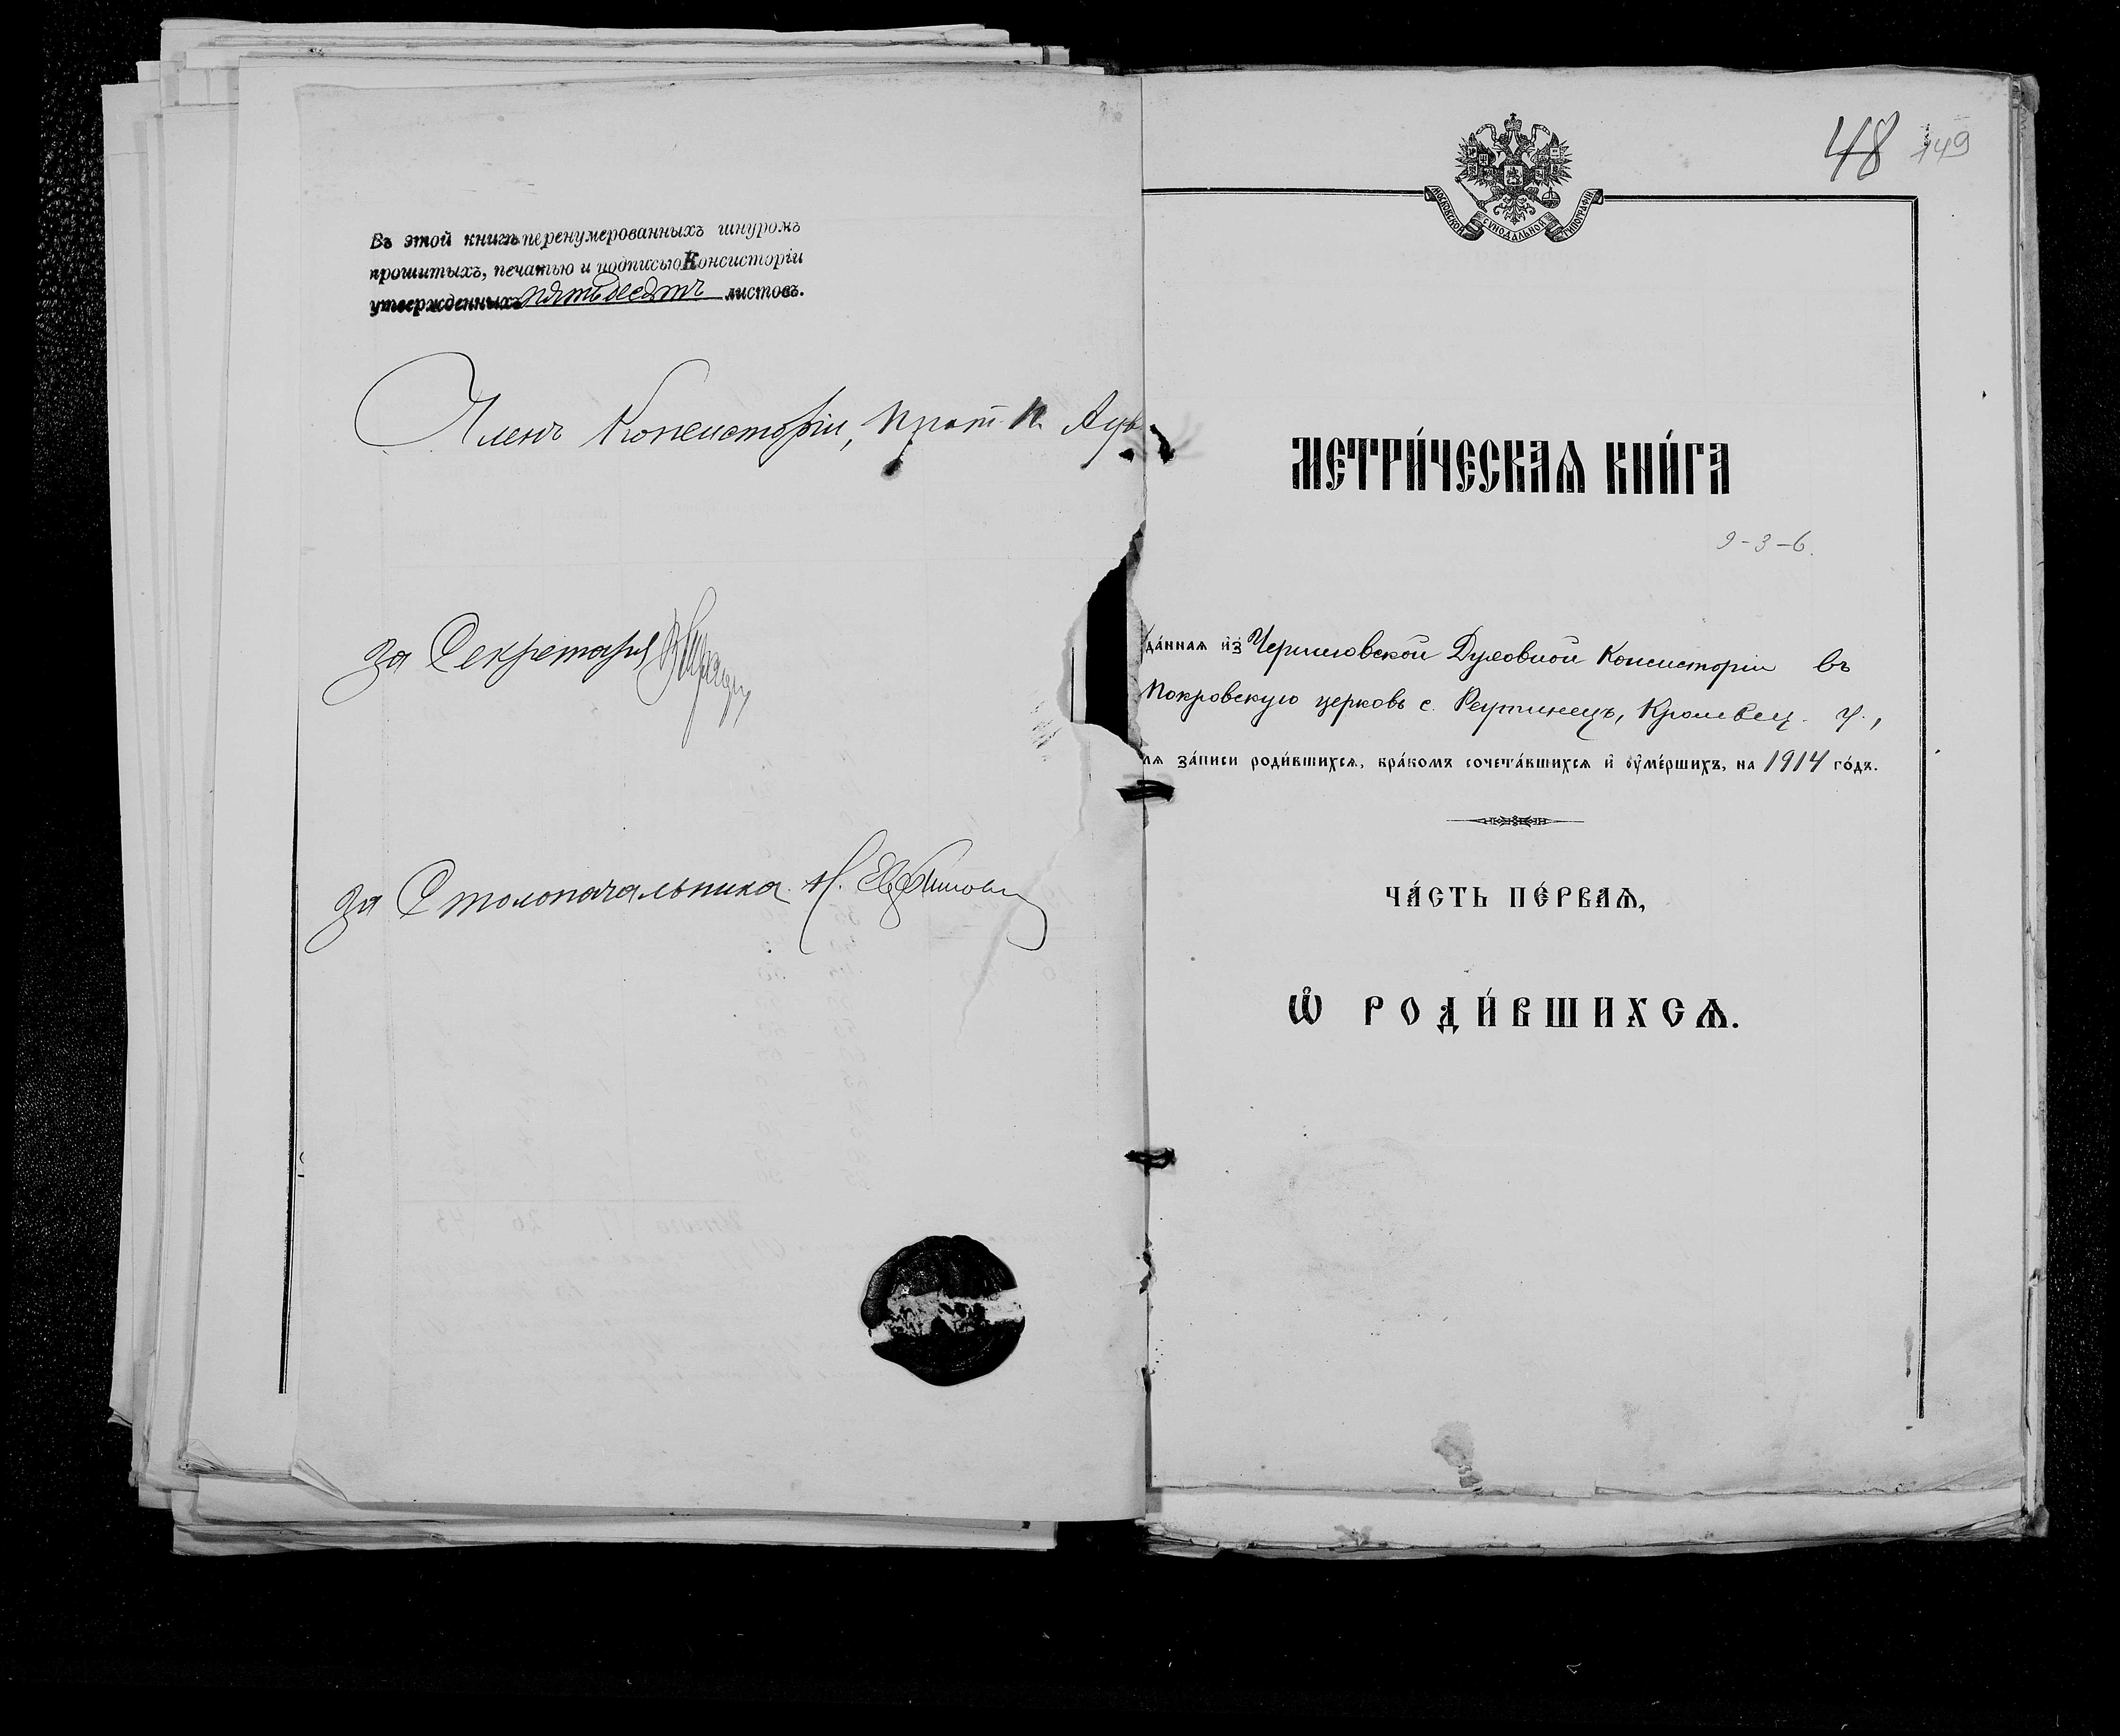 Въ этой книгѣ перенумерованныхъ шнуромъ
прошитыхъ, печатью и подписью Консисторіи
утвержденныхъ пятьдесятъ листовъ.
Членъ Консисторіи, прот. П.
за Секретаря
за Столоначальника Н.
48 149
МОСКОВСКОЙ СѴНОДАЛЬНОЙ ТИПОГРАФІИ
МЕТРИ́ЧЕСКАѦ КНИ́ГА
9-3-6.
да́ннаѧ и҆з̾ Черниговской Духовной Консисторіи въ
Покровскую церковь с. Реутинецъ, Кролевец. у.,
лѧ за́писи роди́вшихсѧ, бра́комъ сочета́вшихсѧ и҆ ᲂу҆ме́ршихъ, на 1914 го́дъ.
ЧА́СТЬ ПЕ́РВАѦ,
Ѽ РОДИ́ВШИХСѦ.